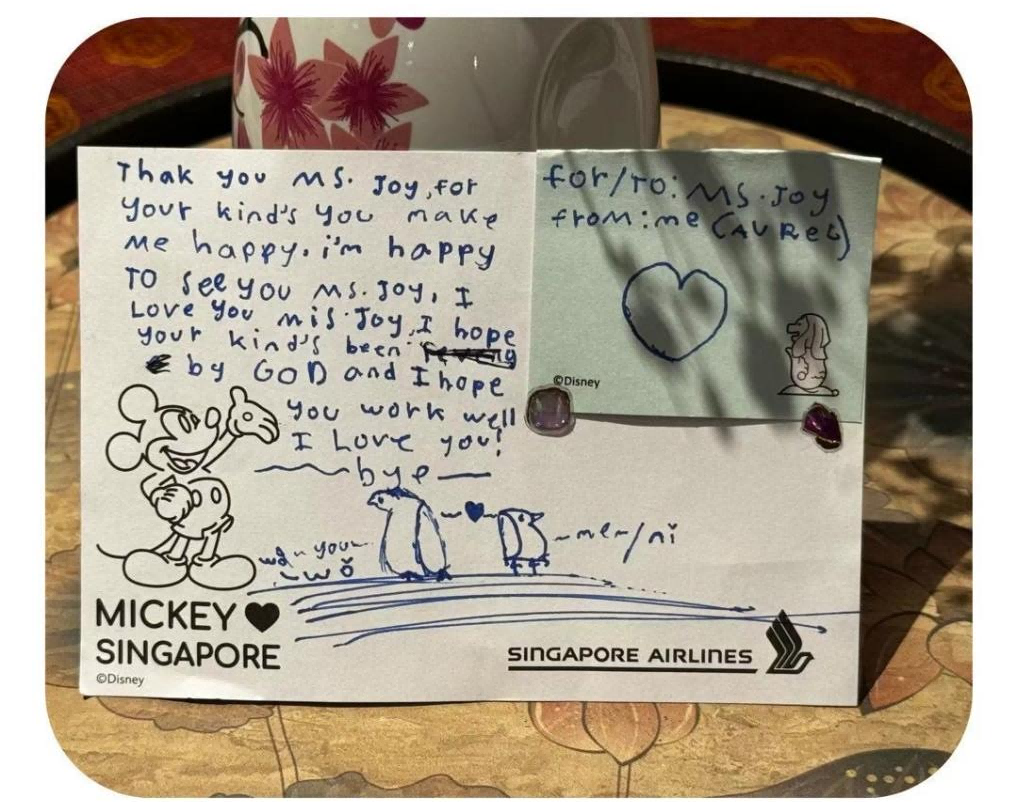 Thak you Ms. Joy, for
your kind's you make
me happy. i'm happy
To see you Ms. Joy, I
Love you mis. Joy, I hope
your kind's been
by GOD and I hope
you work well
I Love you!
bye
for/To: Ms. Joy
from: me (AUREL)
©Disney
me/ni
you
wǒ
MICKEY
SINGAPORE
©Disney
SINGAPORE AIRLINES